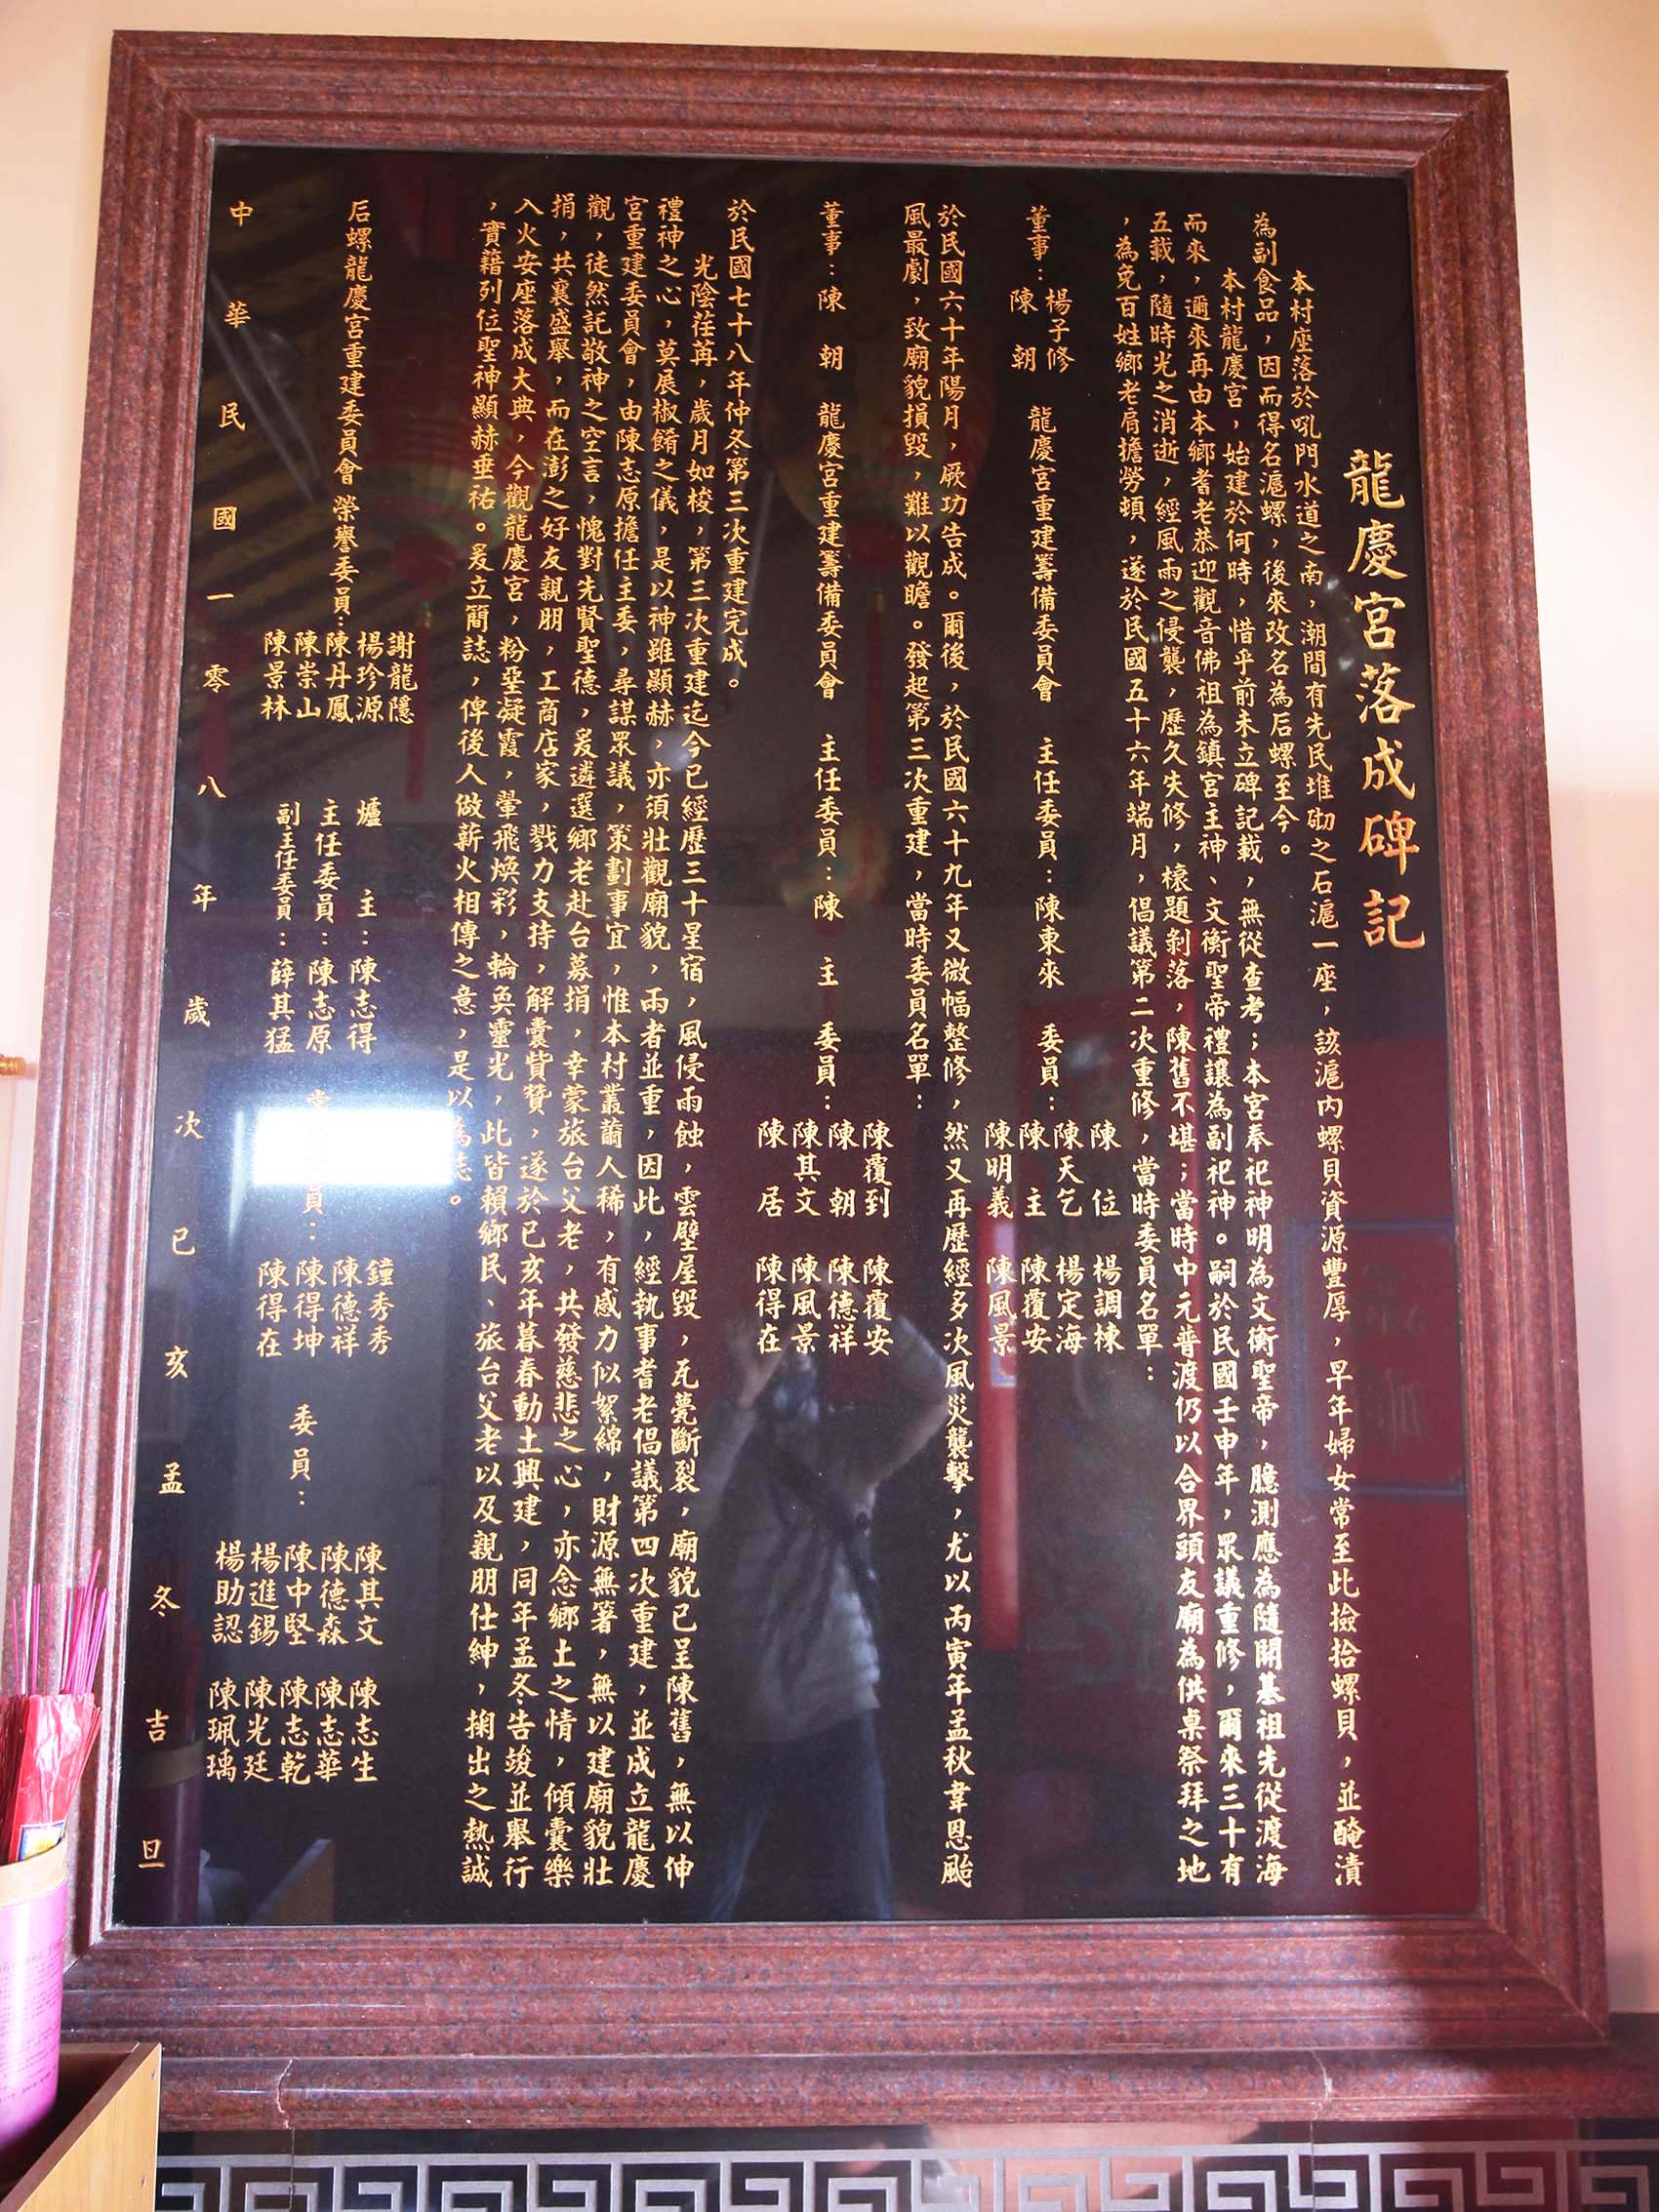 龍慶宮落成碑記
本村座落於吼門水道之南，潮間有先民堆砌之石滬一座，該滬內螺貝資源豐厚，早年婦女常至此撿拾螺貝，並醃漬
為副食品，因而得名滬螺，後來改名為后螺至今。
本村龍慶宮，始建於何時，惜乎前未立碑記載，無從查考；本宮奉祀神明為文衡聖帝，臆測應為隨開基祖先從渡海
而來，邇來再由本鄉耆老恭迎觀音佛祖為鎮宮主神、文衡聖帝禮讓為副祀神。嗣於民國壬申年，眾議重修，爾來三十有
五載，隨時光之消逝，經風雨之侵襲，歷久失修，榱題剝落，陳舊不堪；當時中元普渡仍以合界頭友廟為供桌祭拜之地
，為免百姓鄉老肩擔勞頓，遂於民國五十六年端月，倡議第二次重修，當時委員名單：
董事：楊子修 陳　朝　龍慶宮重建籌備委員會　主任委員：陳東來　委員：陳　位　楊調棟
陳天乞　楊定海
陳　主　陳覆安
陳明義　陳風景
於民國六十年陽月，厥功告成。爾後，於民國六十九年又微幅整修，然又再歷經多次風災襲擊，尤以丙寅年孟秋韋恩颱
風最劇，致廟貌損毀，難以觀瞻。發起第三次重建，當時委員名單：
董事：陳　朝　龍慶宮重建籌備委員會　主任委員：陳　主　委員：陳覆到　陳覆安
陳　朝　陳德祥
陳其文　陳風景
陳　居　陳得在
於民國七十八年仲冬第三次重建完成。
光陰荏苒，歲月如梭，第三次重建迄今已經歷三十星宿，風侵雨蝕，雲壁屋毀，瓦甍斷裂，廟貌已呈陳舊，無以伸
禮神之心，莫展椒餚之儀，是以神雖顯赫，亦須壯觀廟貌，兩者並重，因此，經執事耆老倡議第四次重建，並成立龍慶
宮重建委員會，由陳志原擔任主委，尋謀眾議，策劃事宜，惟本村叢薾人稀，有感力似絮綿，財源無著，無以建廟貌壯
觀，徒然託敬神之空言，愧對先賢聖德，爰遴選鄉老赴台募捐，幸蒙旅台父老，共發慈悲之心，亦念鄉土之情，傾囊樂
捐，共襄盛舉，而在澎之好友親朋，工商店家，戮力支持，解囊貲贊，遂於己亥年暮春動土興建，同年孟冬告竣並舉行
入火安座落成大典，今觀龍慶宮，粉堊凝霞，翬飛煥彩，輪奐靈光，此皆賴鄉民、旅台父老以及親朋仕紳，掬出之熱誠
，實藉列位聖神顯赫垂祐。爰立簡誌，俾後人做薪火相傳之意，是以為誌。
后螺龍慶宮重建委員會 榮譽委員：謝龍隱
楊珍源
陳丹鳳
陳崇山
陳景林
爐　主：陳志得
主任委員：陳志原
副主任委員：薛其猛
員：鐘秀秀
陳德祥
陳得坤
陳得在
委員：陳其文　陳志生
陳德森　陳志華
陳中堅　陳志乾
楊進錫　陳光廷
楊助認　陳珮瑀
中華民國一零八年歲次己亥孟冬吉旦